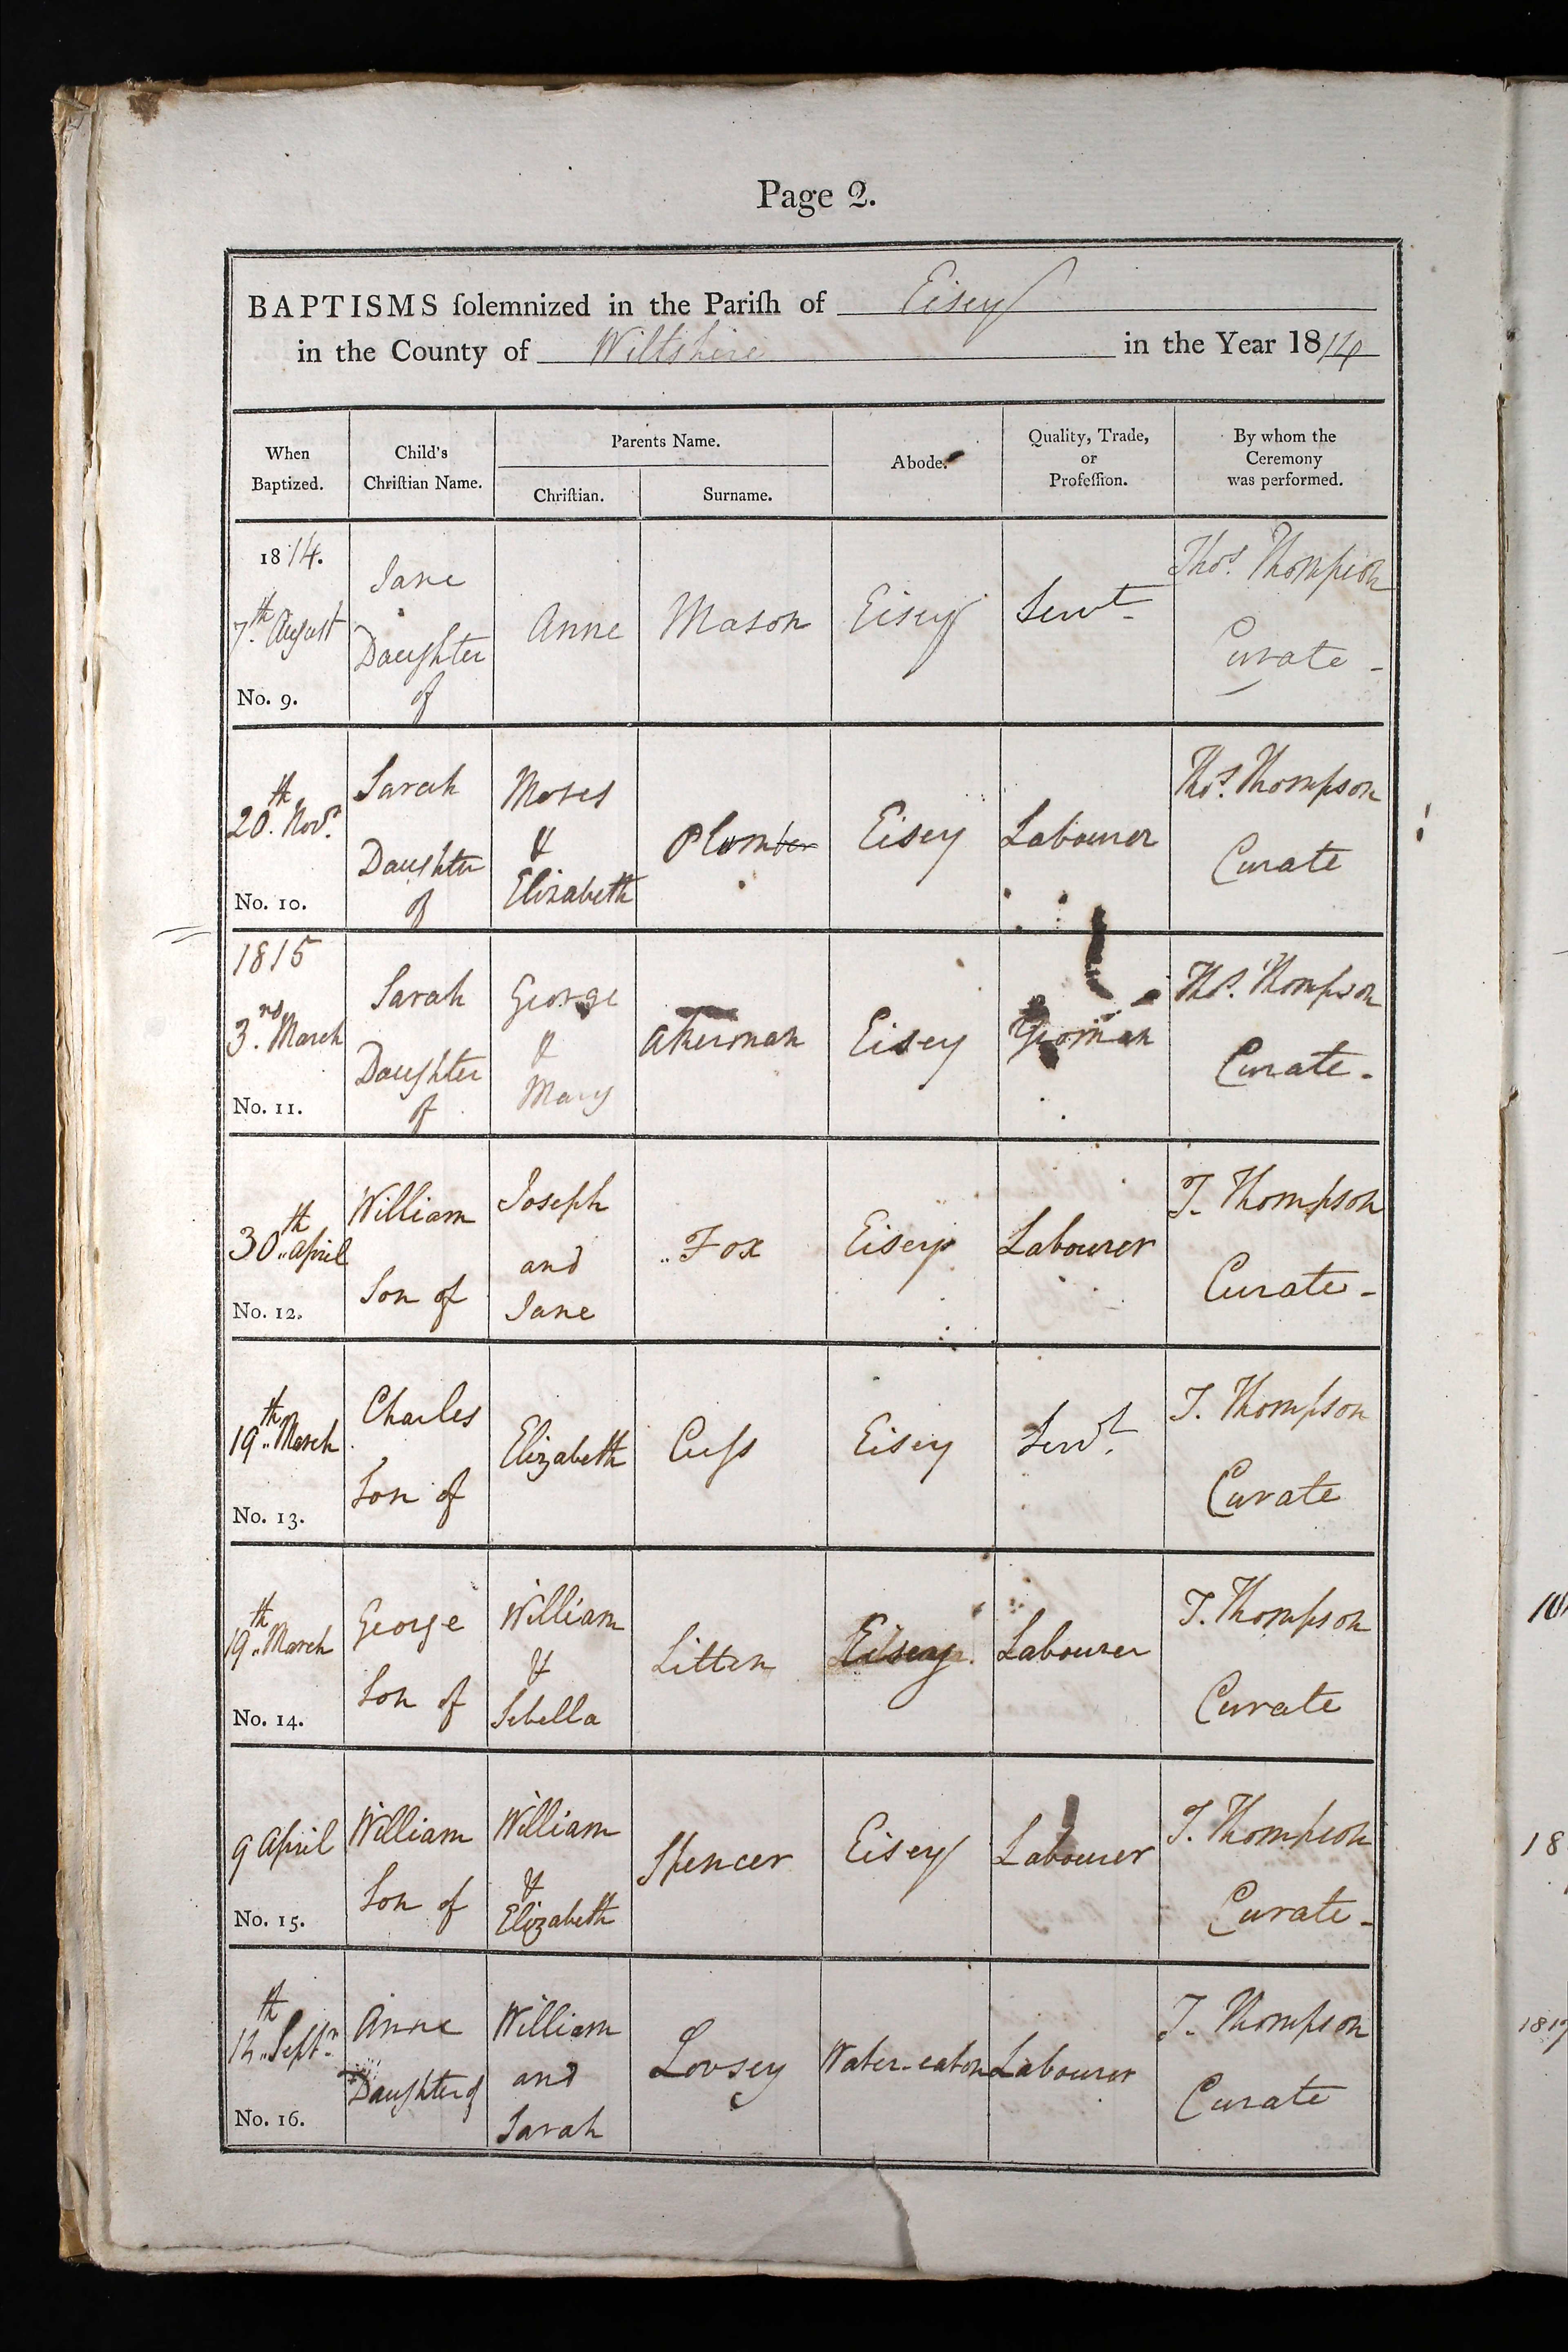 Page 2.
BAPTISMS ſolemnized in the Pariſh of Eisey
in the County of Wiltshire in the Year 1814
When Baptized. Child's Chriſtian Name. Parents Name. Chriſtian. Surname. Abode. Quality, Trade, or Profeſſion. By whom the Ceremony was performed.
1814.
7th. August
No. 9.
Jane
Daughter
of
Anne
Mason
Eisey
Servt
Thos. Thompson
Curate -
20th. Novr.
No. 10.
Sarah
Daughter
of
Moses
&
Elizabeth
Plomber
Eisey
Labourer
Thos. Thompson
Curate
1815
3rd. March
No. 11.
Sarah
Daughter
of
George
&
Mary
Akerman
Eisey
Yeoman
Thos. Thompson
Curate -
30th April
No. 12.
William
Son of
Joseph
and
Jane
Fox
Eisey
Labourer
T. Thompson
Curate -
19th March
No. 13.
Charles
Son of
Elizabeth
Cuſs
Eisey
Servt.
T. Thompson
Curate
19th March
No. 14.
George
Son of
William
&
Sebella
Litten
Eisey.
Labourer
T. Thompson
Curate
9 April
No. 15.
William
Son of
William
&
Elizabeth
Spencer
Eisey
Labourer
T. Thompson
Curate -
12th Septr.
No. 16.
Anne
Daughter of
William
and
Sarah
Lovsey
Water-eaton
Labourer
T. Thompson
Curate
18
181